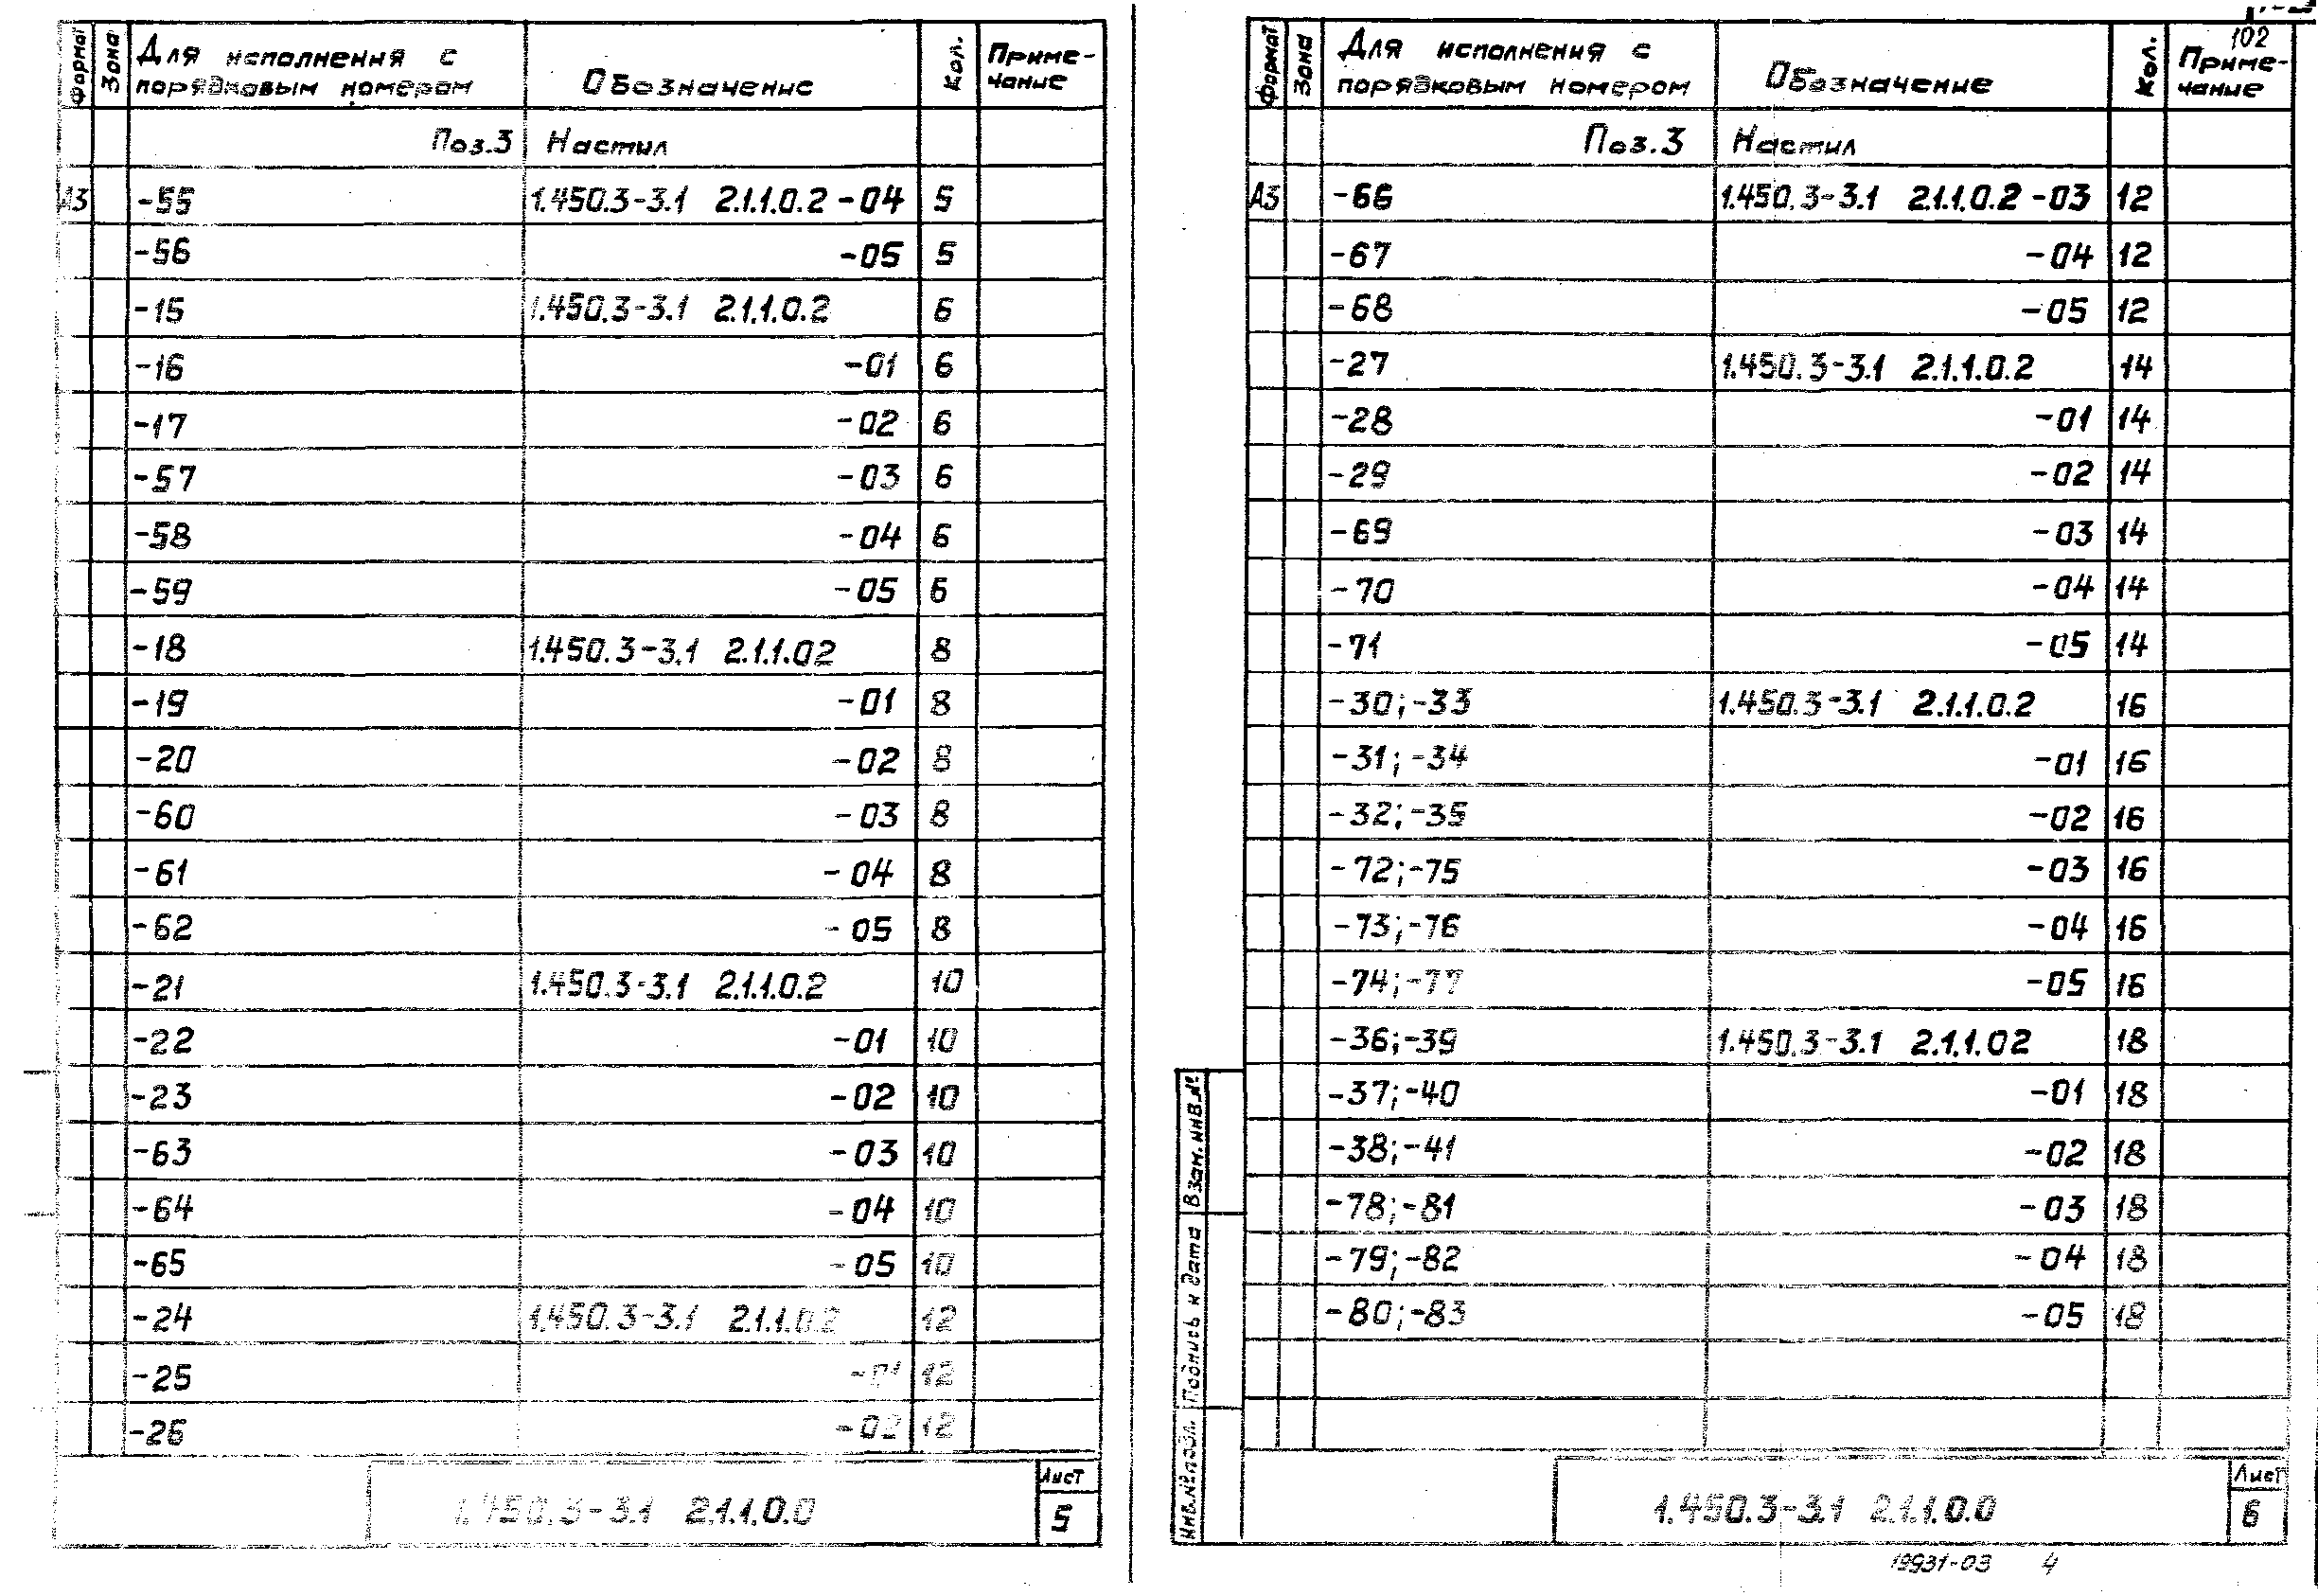 Формат Зона Для исполнения с порядковым номером Обозначение Кол. Приме-чание
Поз.3 Настил
А3 -55 1.450.3-3.1 2.1.1.0.2 -04 5
-56 -05 5
-15 1.450.3-3.1 2.1.1.0.2 6
-16 -01 6
-17 -02 6
-57 -03 6
-58 -04 6
-59 -05 6
-18 1.450.3-3.1 2.1.1.02 8
-19 -01 8
-20 -02 8
-60 -03 8
-61 -04 8
-62 -05 8
-21 1.450.3-3.1 2.1.1.0.2 10
-22 -01 10
-23 -02 10
-63 -03 10
-64 -04 10
-65 -05 10
-24 1.450.3-3.1 2.1.1.0.2 12
-25 -01 12
-26 -02 12
1.450.3-3.1 2.1.1.0.0
Лист
5
102
Формат Зона Для исполнения с порядковым номером Обозначение Кол. Приме-чание
Поз.3 Настил
А3 -66 1.450.3-3.1 2.1.1.0.2 -03 12
-67 -04 12
-68 -05 12
-27 1.450.3-3.1 2.1.1.0.2 14
-28 -01 14
-29 -02 14
-69 -03 14
-70 -04 14
-71 -05 14
-30;-33 1.450.3-3.1 2.1.1.0.2 16
-31;-34 -01 16
-32;-35 -02 16
-72;-75 -03 16
-73;-76 -04 16
-74;-77 -05 16
-36;-39 1.450.3-3.1 2.1.1.02 18
-37;-40 -01 18
-38;-41 -02 18
-78;-81 -03 18
-79;-82 -04 18
-80;-83 -05 18
Взам.инв.№
Подпись и дата
Инв.№подл.
1.450.3-3.1 2.1.1.0.0
Лист
6
19931-03 4